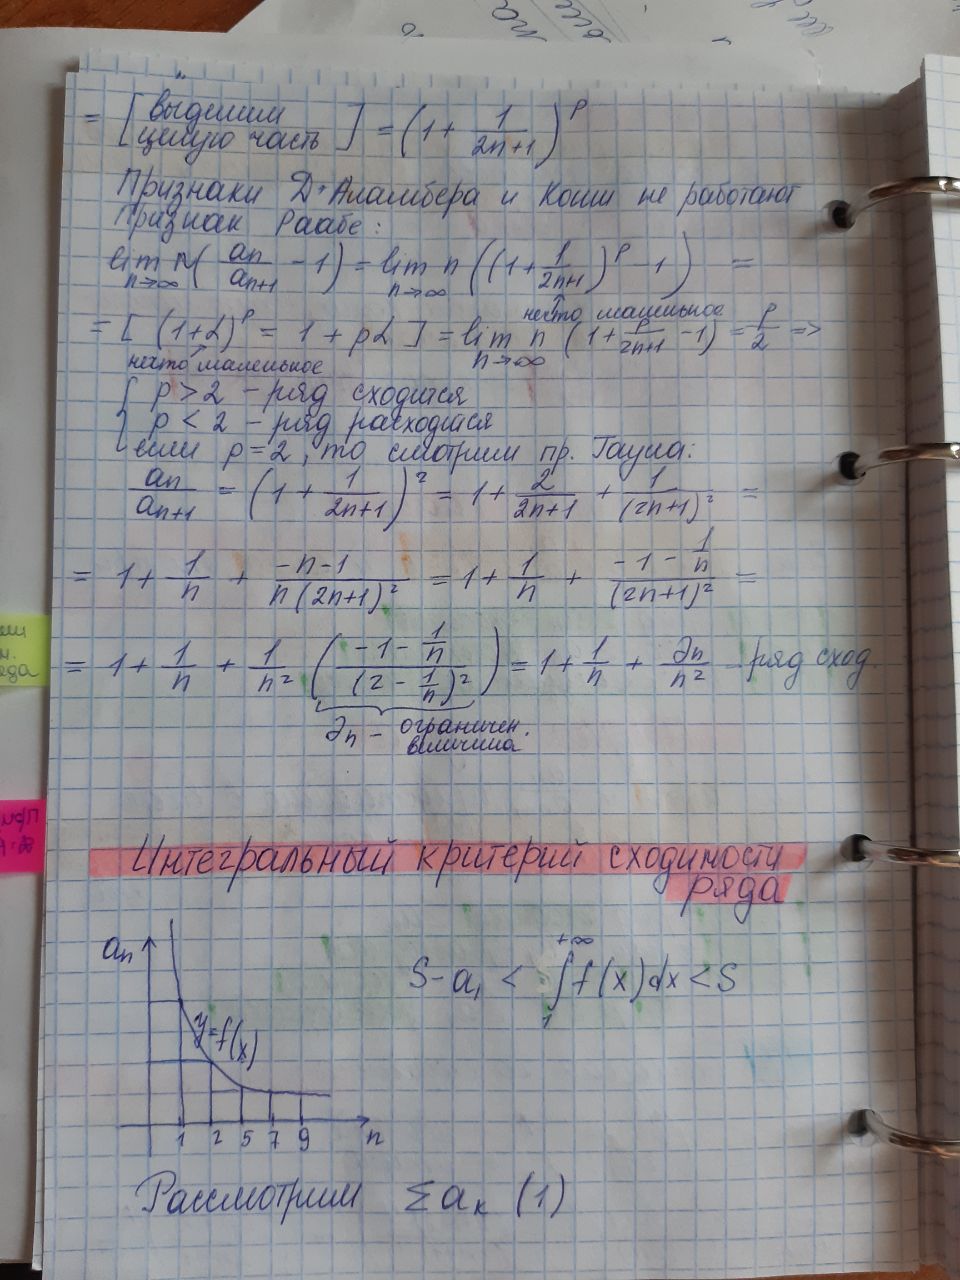 = [выделим целую часть] = (1 + 1/(2n+1))^p
Признаки Д'Аламбера и Коши не работают
Признак Раабе:
lim n→∞ n( an/an+1 - 1) = lim n→∞ n ((1 + 1/(2n+1))^p - 1) =
= [ (1+α)^p = 1 + pα ] = lim n→∞ n (1 + p/(2n+1) - 1) = p/2 =>
нечто маленькое
нечто маленькое
{ p > 2 - ряд сходится
p < 2 - ряд расходится
если p = 2, то смотрим пр. Гаусса:
an/an+1 = (1 + 1/(2n+1))² = 1 + 2/(2n+1) + 1/(2n+1)² =
= 1 + 1/n + (-n-1)/(n(2n+1)²) = 1 + 1/n + (-1 - 1/n)/(2n+1)² =
= 1 + 1/n + 1/n² ((-1 - 1/n)/(2 - 1/n)²) = 1 + 1/n + ∂n/n² - ряд сход.
∂n - ограничен.
величина
Интегральный критерий сходимости
ряда
an
S - a₁ < ∫₁^+∞ f(x)dx < S
y=f(x)
1 2 5 7 9 n
Рассмотрим Σaк (1)